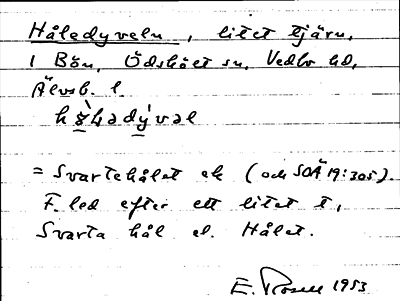 Håledyveln, litet tjärn,
i Bön, Ödskölt sn, Vedbo hd,
Älvsb. l.
= Svartehålet ek (och SOÄ 19:305).
F. led efter ett litet t,
Svarta hål el. Hålet.
E. Rosell 1953